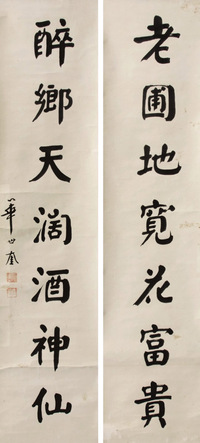 老圃地寬花富貴
醉鄉天闊酒神仙
華世奎